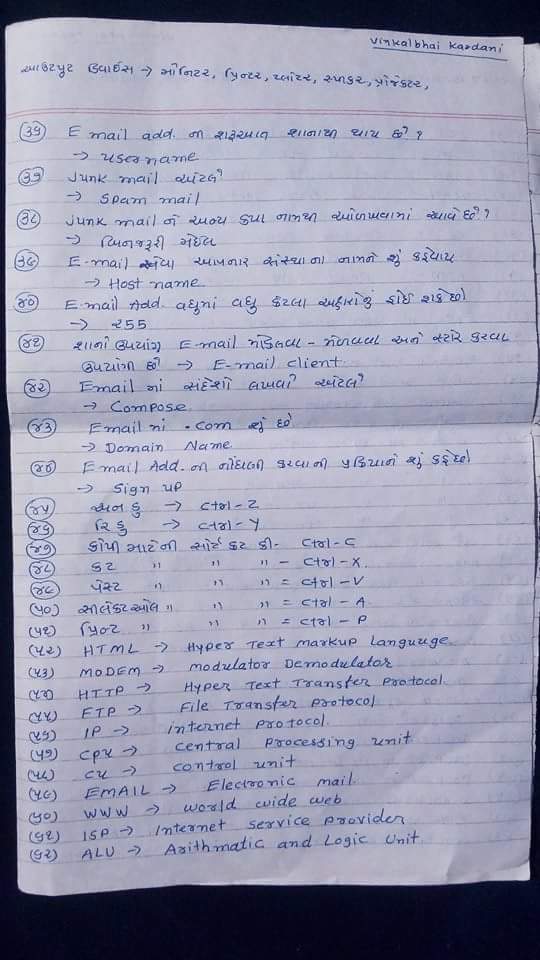 Vinkalbhai Kardani
આઉટપુટ ડિવાઇસ → મોનિટર, પ્રિન્ટર, પ્લોટર, સ્પીકર, પ્રોજેક્ટર,
(૩૬) E mail add. ની શરૂઆત શાનાથી થાય છે ?
→ username
(૩૭) Junk mail એટલે
→ Spam mail
(૩૮) Junk mail ને અન્ય કયા નામથી ઓળખવામાં આવે છે ?
→ બિનજરૂરી મેઇલ
(૩૯) E-mail સેવા આપનાર સંસ્થાના નામને શું કહેવાય
→ Host name
(૪૦) E-mail Add. વધુમાં વધુ કેટલા અક્ષરોનું હોઈ શકે છે
→ ૨૫૫
(૪૧) શાનો ઉપયોગ E-mail મોકલવા - મેળવવા અને સ્ટોર કરવા
ઉપયોગી છે → E-mail client
(૪૨) Email માં સંદેશો લખવો એટલે
→ Compose
(૪૩) Email માં .com શું છે
→ Domain Name
(૪૪) Email Add. ની નોંધણી કરવાની પ્રક્રિયાને શું કહે છે
→ Sign up
(૪૫) અન ડુ → ctrl - Z
(૪૬) રિ ડુ → ctrl - Y
(૪૭) કોપી માટેની શોર્ટ કટ કી - ctrl - C
(૪૮) કટ " " " - ctrl - X
(૪૯) પેસ્ટ " " " = ctrl - V
(૫૦) સીલેક્ટ ઓલ " " " = ctrl - A
(૫૧) પ્રિન્ટ " " " = ctrl - P
(૫૨) HTML → Hyper Text Markup Languuge
(૫૩) MODEM → Modulator Demodulator
(૫૪) HTTP → Hyper Text Transfer Protocol
(૫૫) FTP → File Transfer Protocol
(૫૬) IP → internet protocol
(૫૭) CPU → central processing unit
(૫૮) CU → control unit
(૫૯) EMAIL → Electronic mail
(૬૦) WWW → world wide web
(૬૧) ISP → Internet service provider
(૬૨) ALU → Arithmatic and Logic Unit